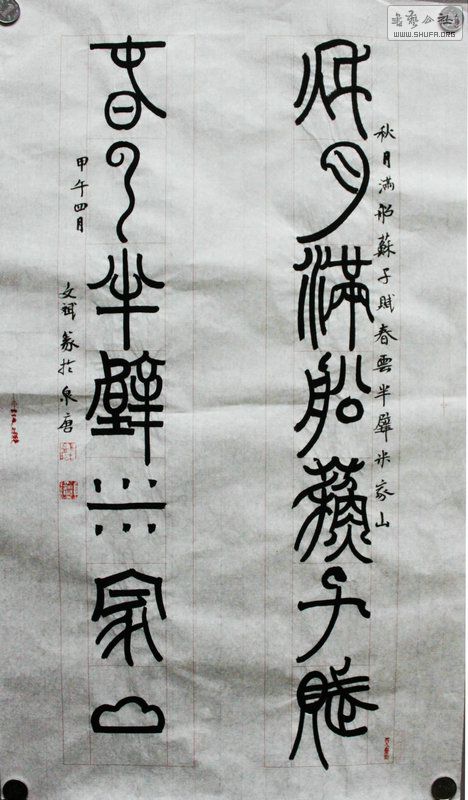 秋月滿船蘇子賦
秋月滿船蘇子賦春雲半壁米家山
春云半壁米家山
甲午四月
文斌篆於泉唐
書藝公社
WWW.SHUFA.ORG